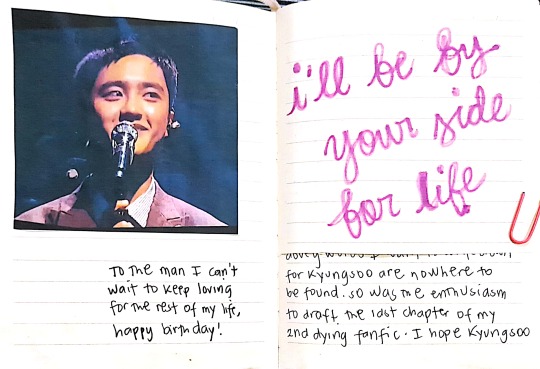 To the man I can't
wait to keep loving
for the rest of my life,
happy birthday!
i'll be by
your side
for life
for Kyungsoo are nowhere to
be found. so was the enthusiasm
to draft the last chapter of my
2nd dying fanfic. I hope Kyungsoo